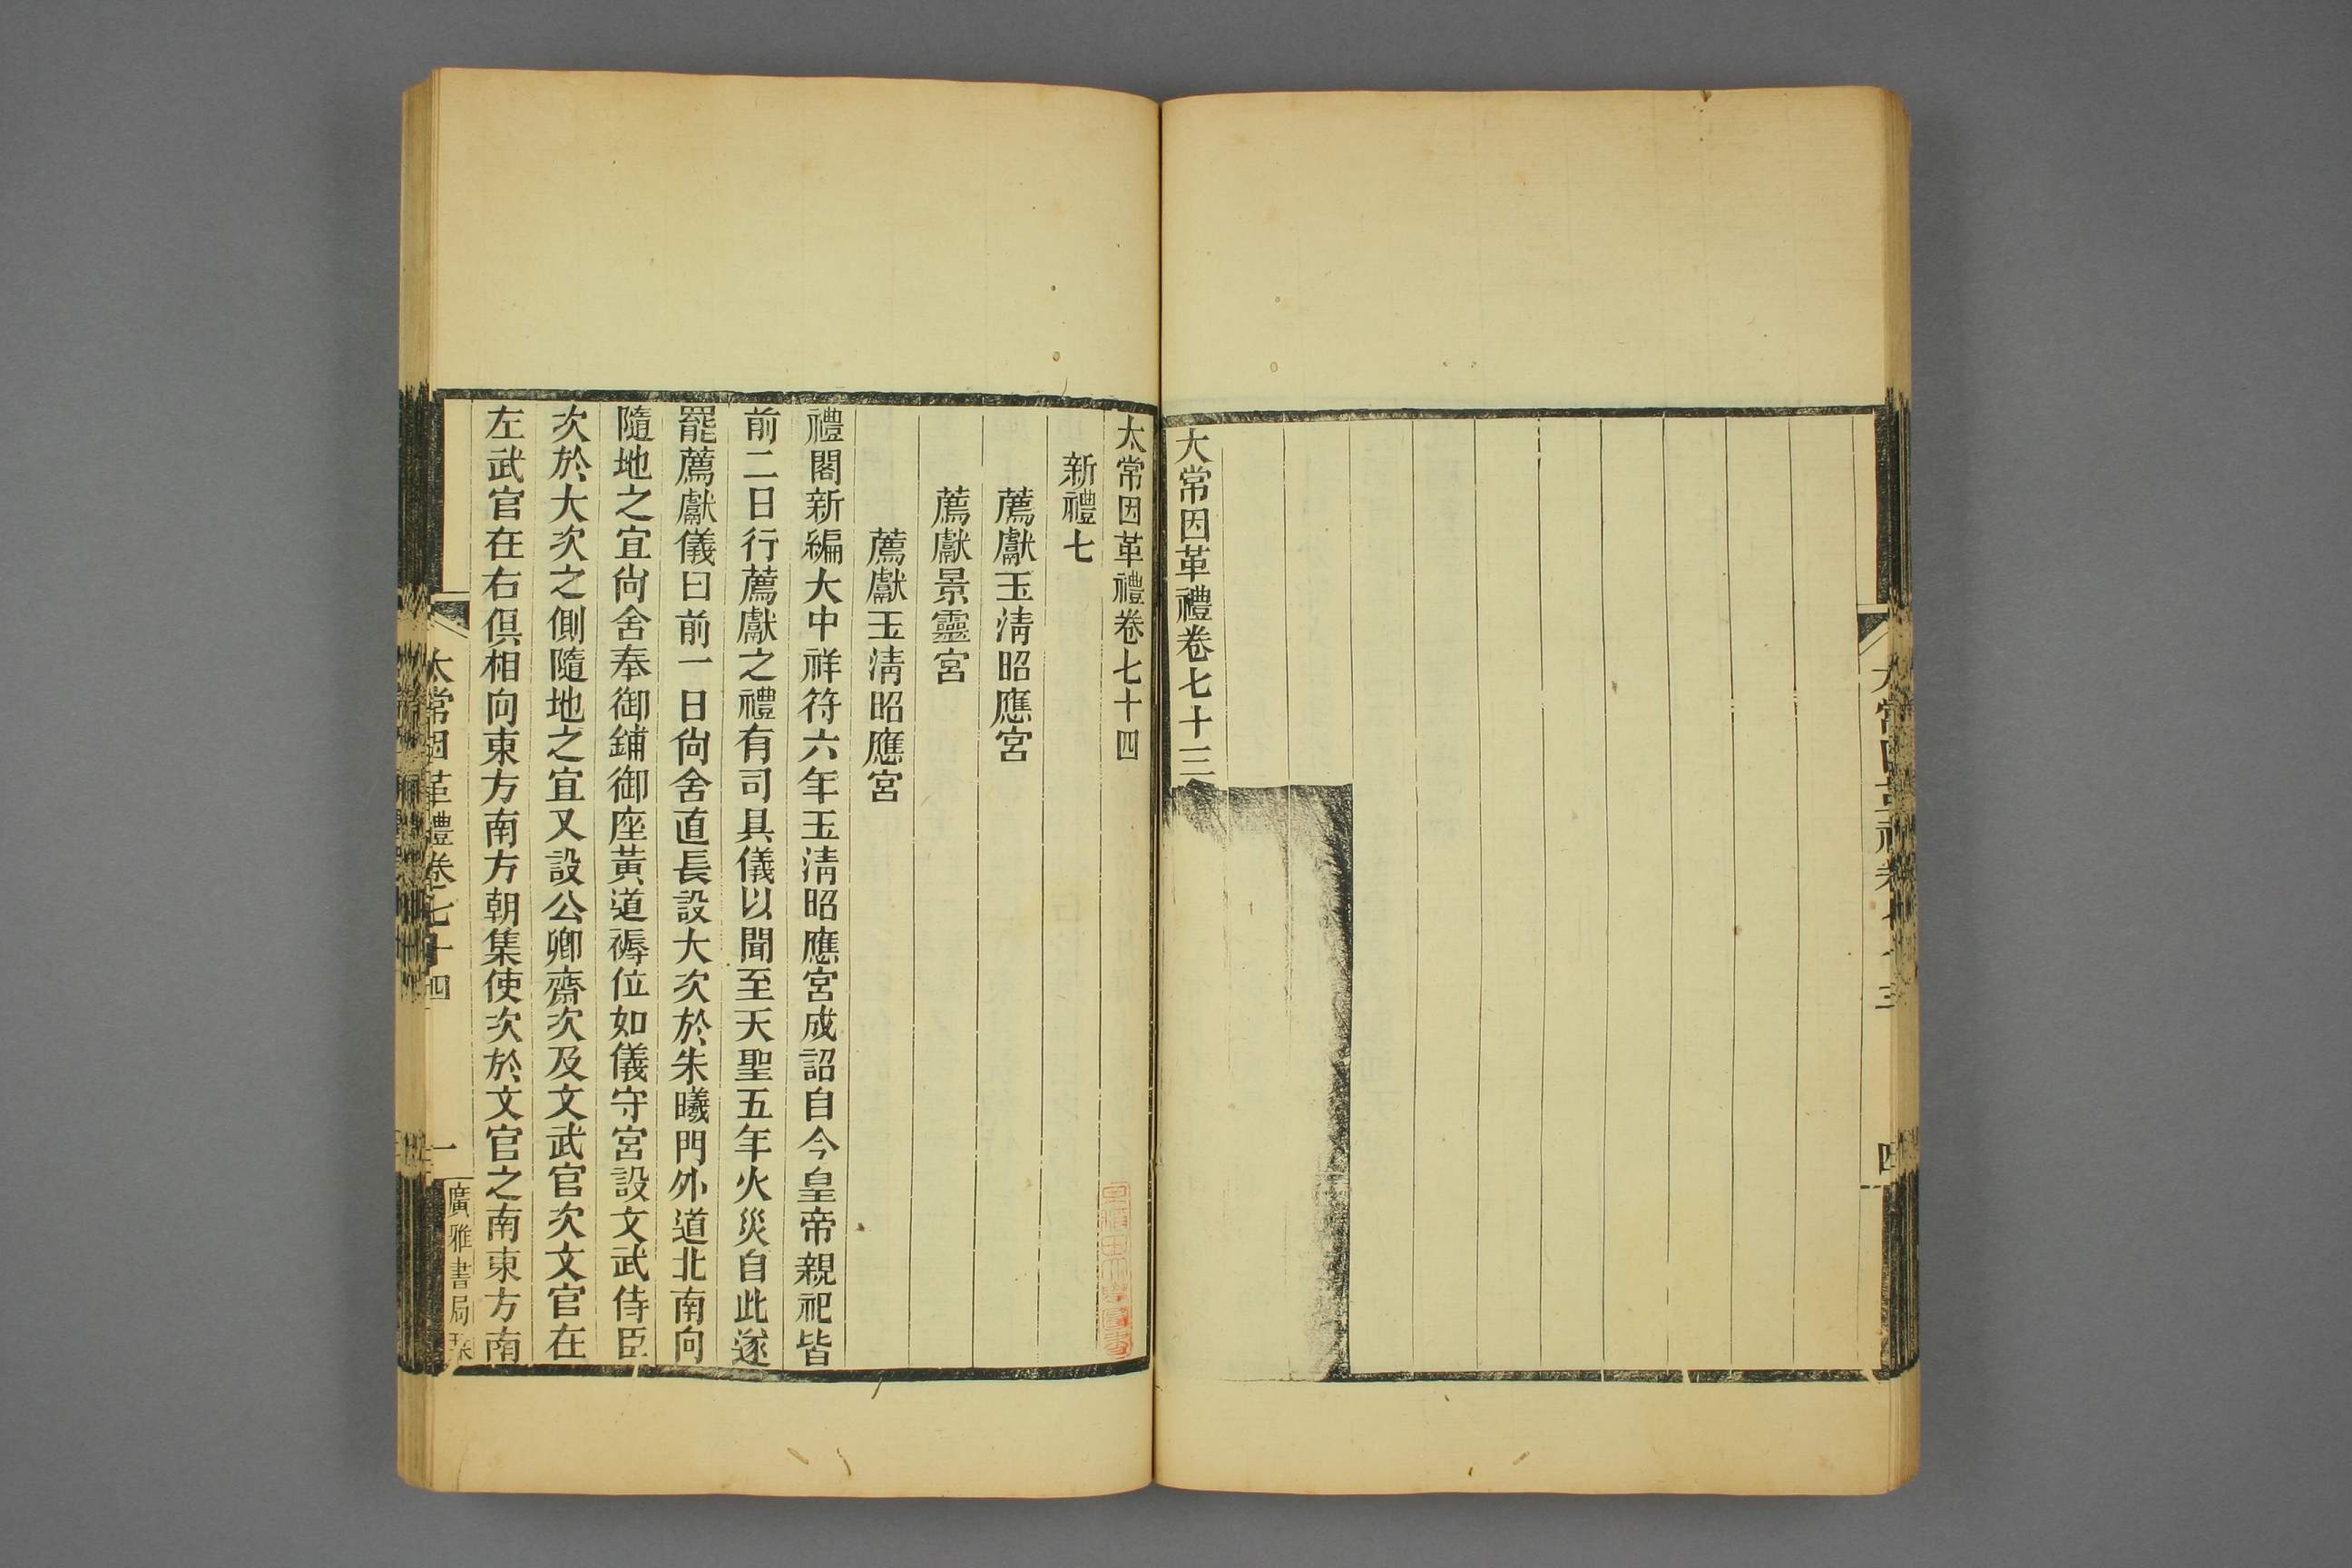 大常因革禮卷七十三
四
太常因革禮卷七十四
新禮七
薦獻玉淸昭應宮
薦獻景靈宮
薦獻玉淸昭應宮
禮閣新編大中祥符六年玉淸昭應宮成詔自今皇帝親祀皆
前二日行薦獻之禮有司具儀以聞至天聖五年火災自此遂
罷薦獻儀曰前一日尙舍直長設大次於朱曦門外道北南向
隨地之宜尙舍奉御鋪御座黃道褥位如儀守宮設文武侍臣
次於大次之側隨地之宜又設公卿齋次及文武官次文官在
左武官在右俱相向東方南方朝集使次於文官之南東方南
太常因革禮卷七十四
一
廣雅書局栞